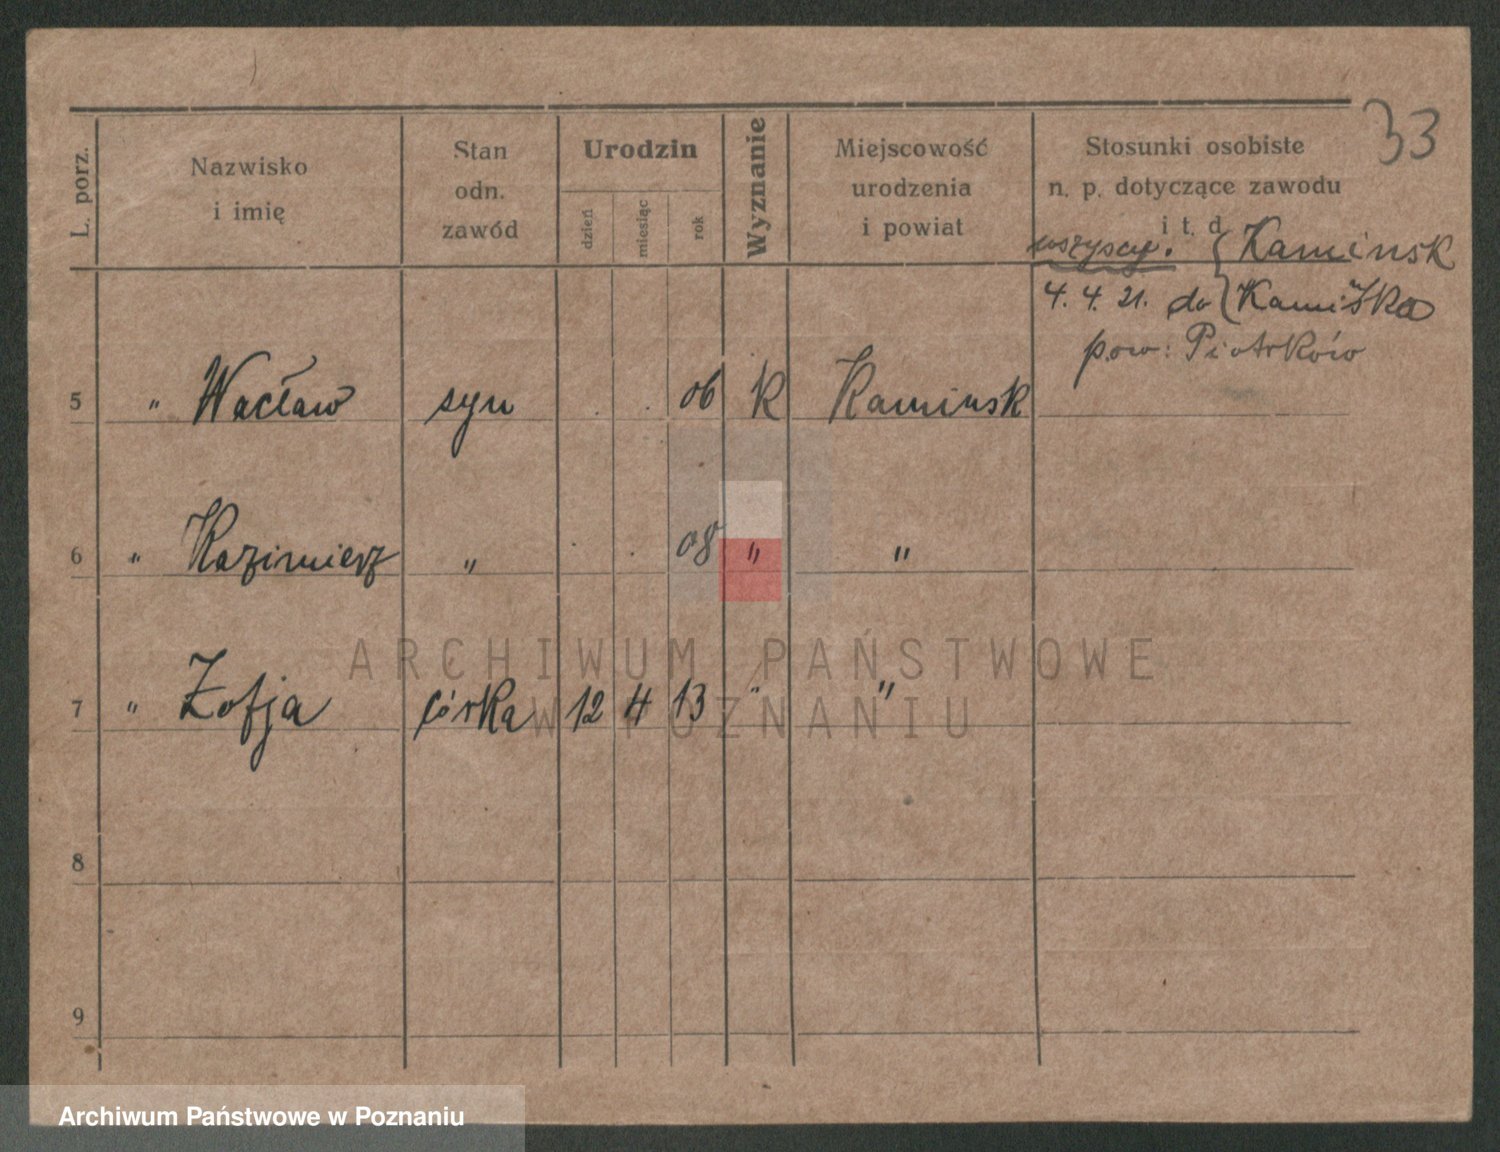 33
L. porz.
Nazwisko
i imię
Stan
odn.
zawód
Urodzin
dzień
miesiąc
rok
Wyznanie
Miejscowość
urodzenia
i powiat
Stosunki osobiste
n. p. dotyczące zawodu
i t. d
wszyscy. { Kaminsk
4. 4. 21. do { Kamińska
pow: Piotrków
5 " Wacław syn . . 06 K Kaminsk
6 " Kazimierz " . . 08 " "
7 " Zofja córka 12 4 13 " "
8
9
ARCHIWUM PAŃSTWOWE
W POZNANIU
Archiwum Państwowe w Poznaniu